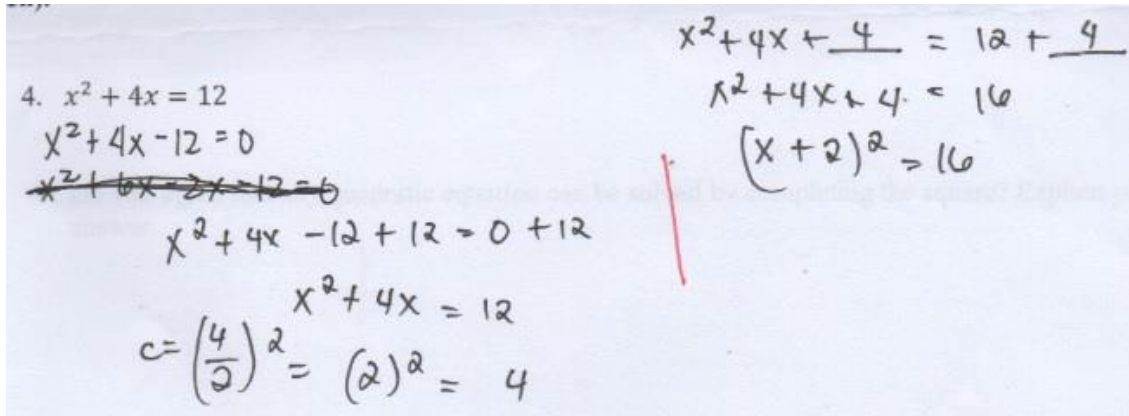 4. x² + 4x = 12
x² + 4x - 12 = 0
x² + 6x - 2x - 12 = 0
x² + 4x - 12 + 12 = 0 + 12
x² + 4x = 12
c = (4/2)² = (2)² = 4
x² + 4x + 4 = 12 + 4
x² + 4x + 4 = 16
(x + 2)² = 16